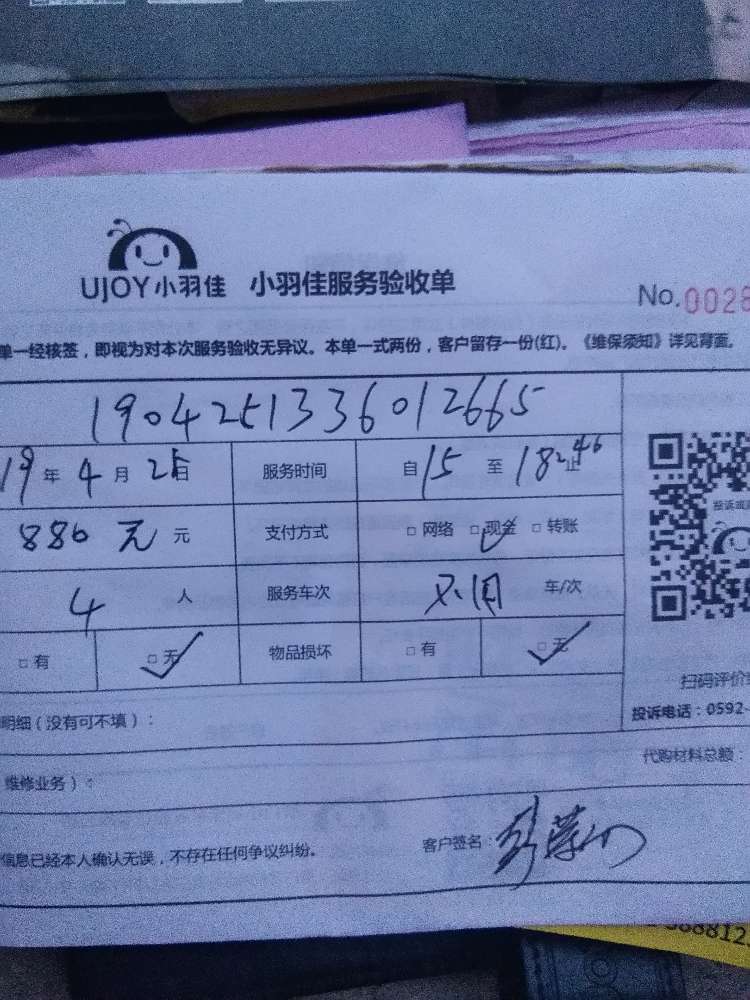 UJOY小羽佳 小羽佳服务验收单
No.0028
单一经核签，即视为对本次服务验收无异议。本单一式两份，客户留存一份(红)。《维保须知》详见背面。
1904251336012665
19年4月25日 服务时间 自15至18 46止
880元 元 支付方式 □网络 □现金 □转账
4人 服务车次 不用 车/次
□有 □无 物品损坏 □有 □无
扫码评价
明细（没有可不填）：
投诉电话：0592-
代购材料总额：
维修业务）
信息已经本人确认无误，不存在任何争议纠纷。
客户签名：